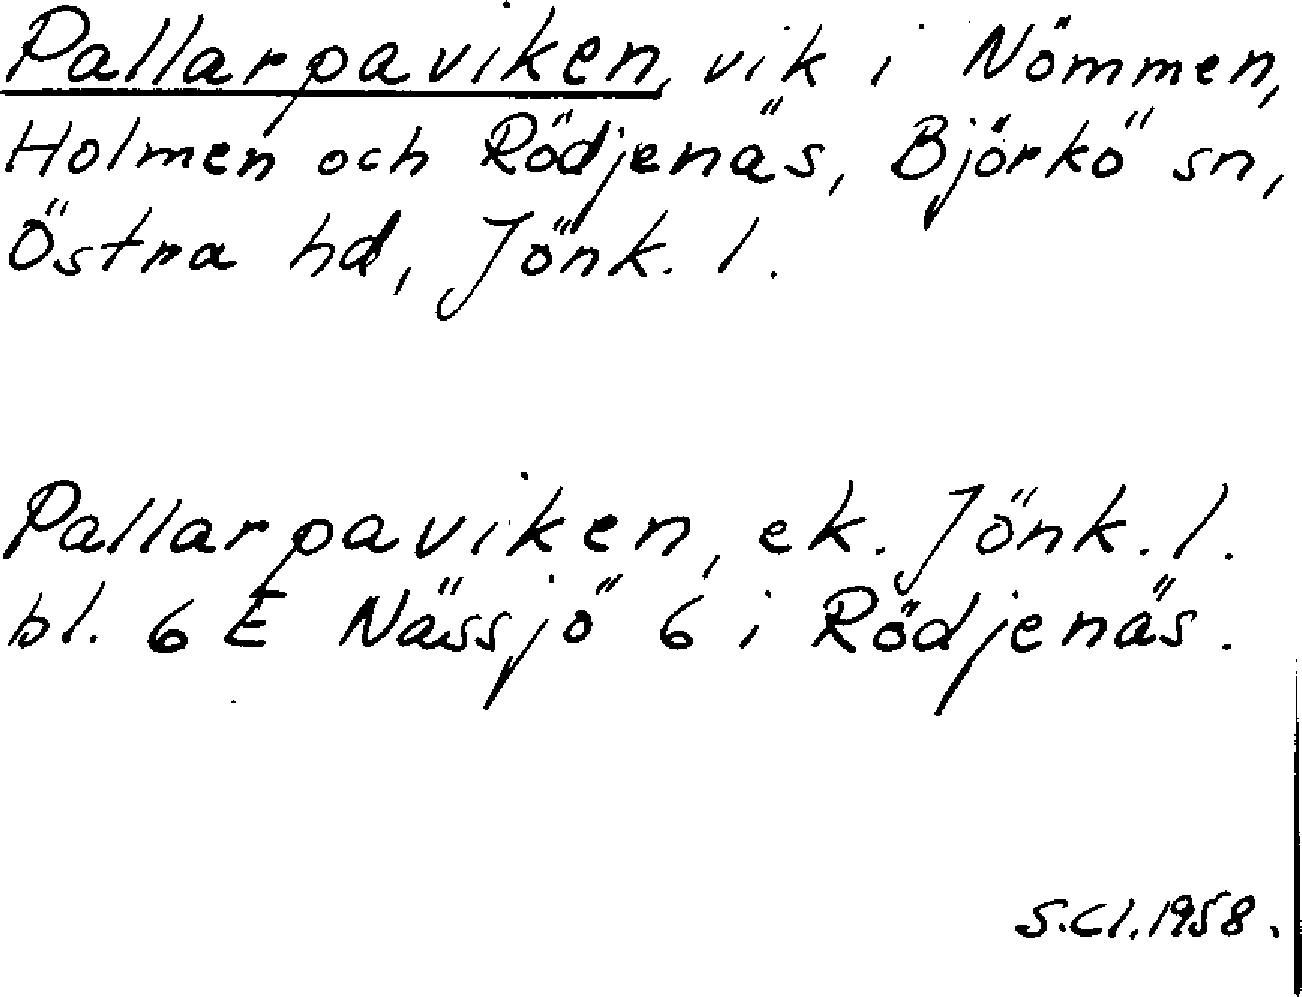 Pallarpaviken, vik i Nömmen,
Holmen och Rödjenäs, Björkö sn,
Östra hd, Jönk. l.
Pallarpaviken, ek. Jönk. l.
bl. 6 E Nässjö 6 i Rödjenäs.
S.Cl. 1958.